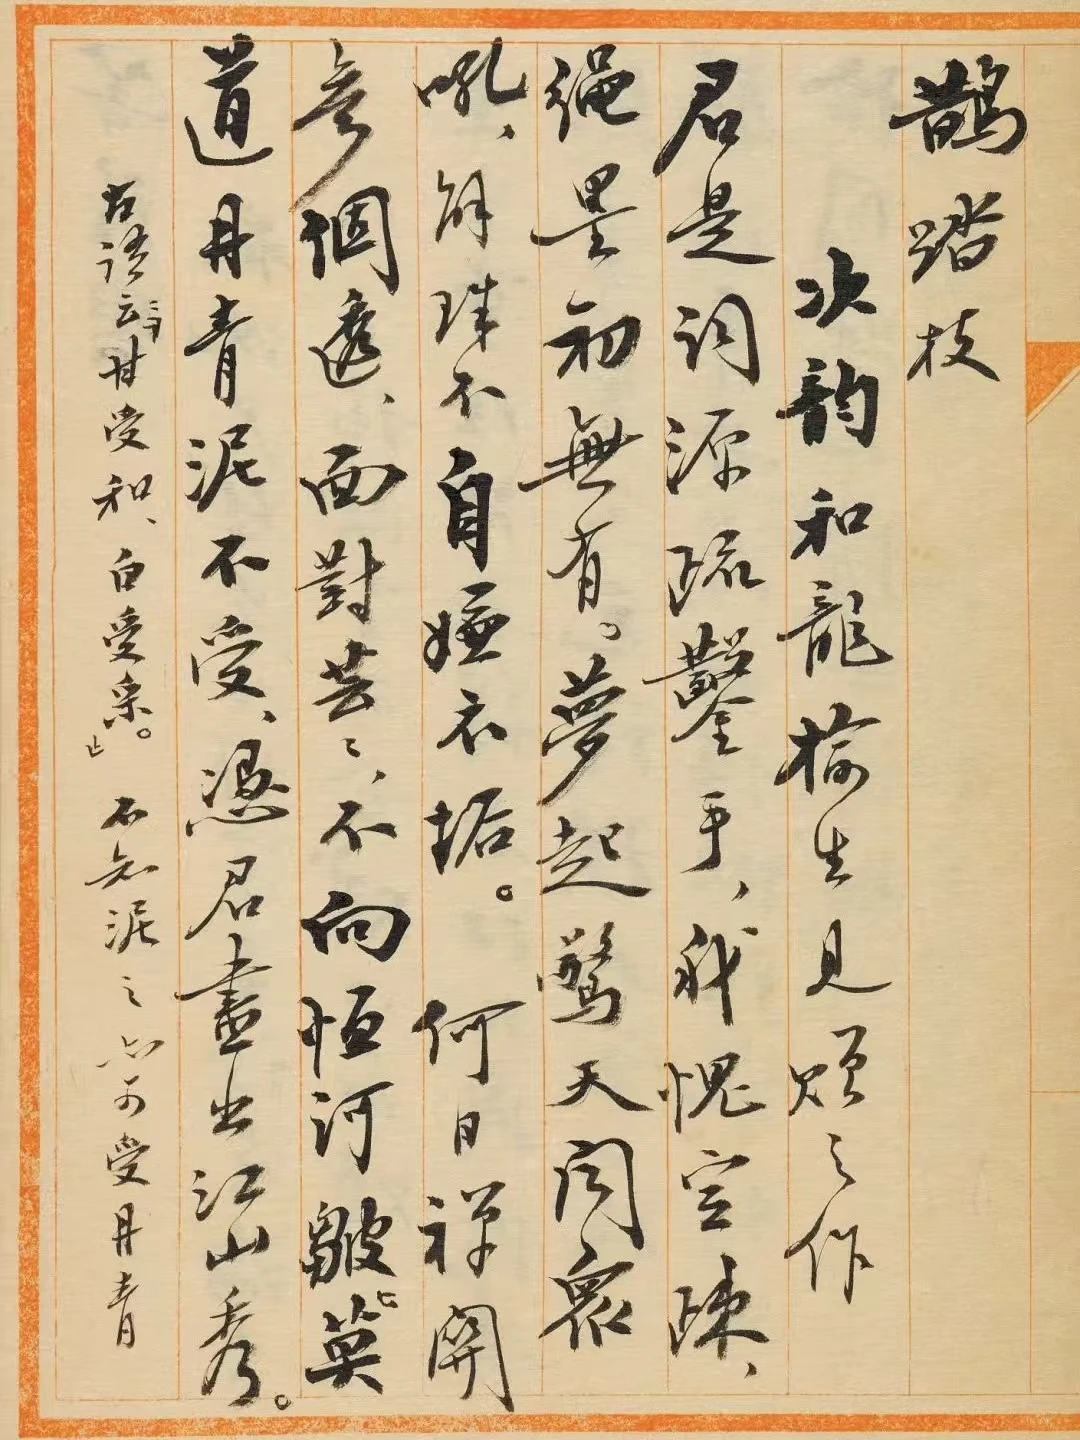 鵲踏枝
次韵和龍榆生見贈之作
君是词源疏鑿手、我愧空疎、
繩墨初無有。夢起驚天闻眾
吼、解珠不自嫌衣垢。何日禪關
參個透、面對芸〻、不向恒河皺。莫
道丹青泥不受、憑君畫出江山秀。
古语云「甘受和、白受采。」不知泥之亦可受丹青